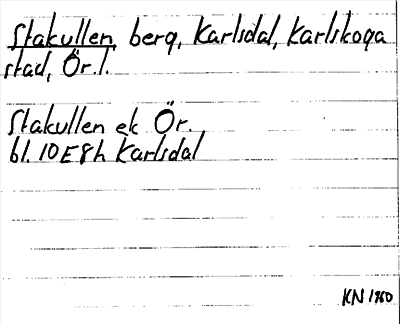 Stakullen, berg, Karlsdal, Karlskoga
stad, Ör.l.
Stakullen ek Ör.
bl. 10E8h Karlsdal
KN 1960